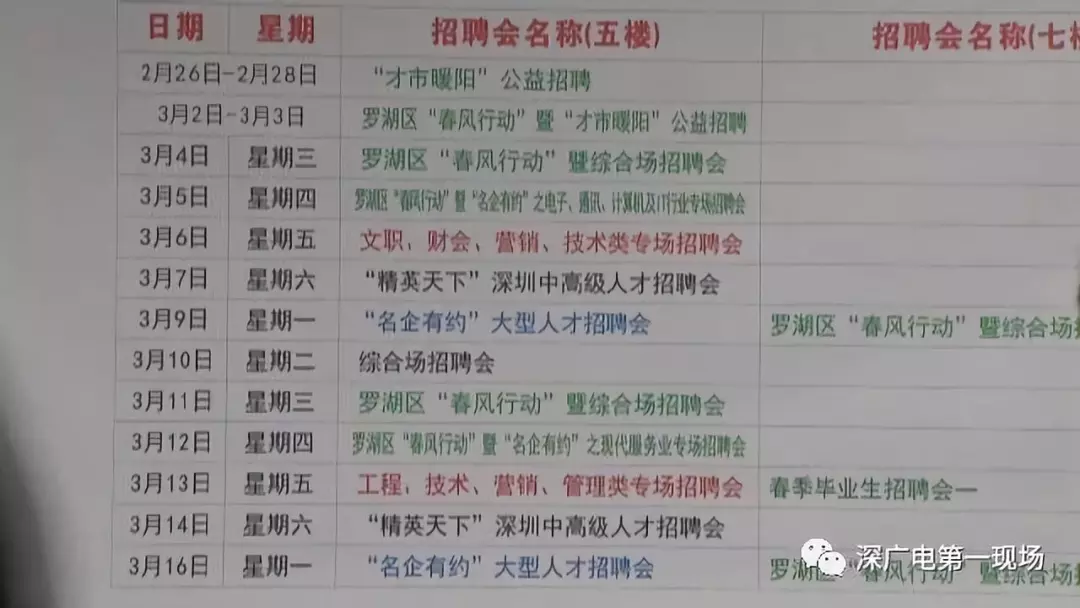 日期 星期 招聘会名称(五楼) 招聘会名称(七
2月26日-2月28日 “才市暖阳”公益招聘
3月2日-3月3日 罗湖区“春风行动”暨“才市暖阳”公益招聘
3月4日 星期三 罗湖区“春风行动”暨综合场招聘会
3月5日 星期四 罗湖区“春风行动”暨“名企有约”之电子、通讯、计算机及IT行业专场招聘会
3月6日 星期五 文职、财会、营销、技术类专场招聘会
3月7日 星期六 “精英天下”深圳中高级人才招聘会
3月9日 星期一 “名企有约”大型人才招聘会 罗湖区“春风行动”暨综合场
3月10日 星期二 综合场招聘会
3月11日 星期三 罗湖区“春风行动”暨综合场招聘会
3月12日 星期四 罗湖区“春风行动”暨“名企有约”之现代服务业专场招聘会
3月13日 星期五 工程、技术、营销、管理类专场招聘会 春季毕业生招聘会一
3月14日 星期六 “精英天下”深圳中高级人才招聘会
3月16日 星期一 “名企有约”大型人才招聘会 罗湖区“春风行动”暨综合场
深广电第一现场